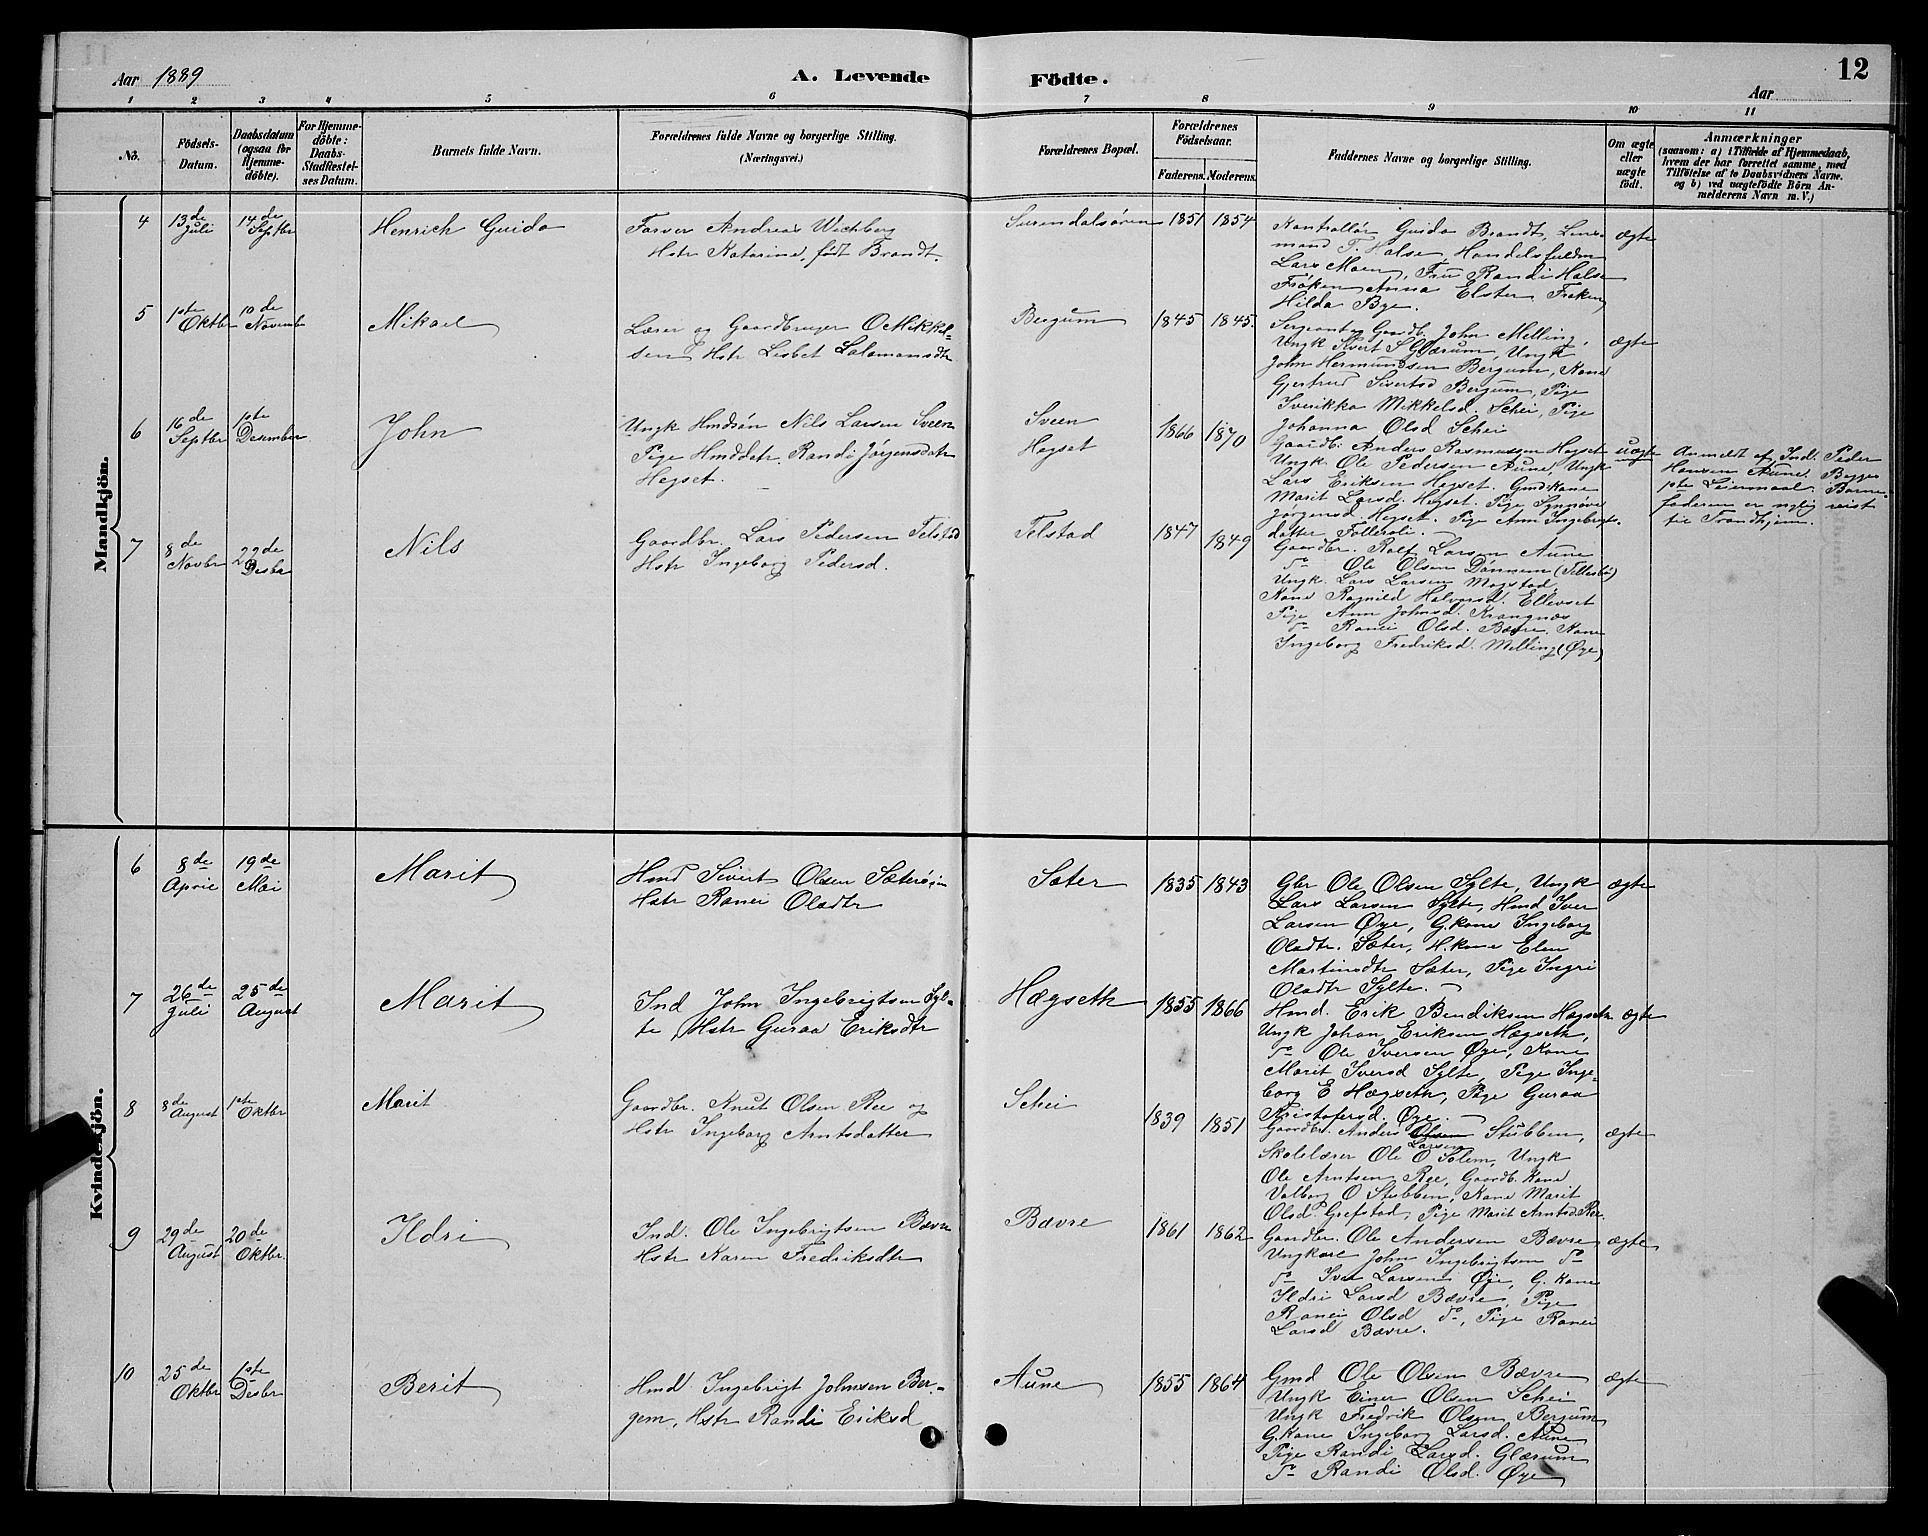 Aar 1889
A. Levende Födte.
Aar
12
1 2 3 4 5 6 7 8 9 10 11
No.
Födsels-Datum.
Daabsdatum (ogsaa for Hjemme-döbte).
For Hjemme-döbte: Daabs-Stadfæstel-ses Datum.
Barnets fulde Navn.
Forældrenes fulde Navne og borgerlige Stilling. (Næringsvei.)
Forældrenes Bopæl.
Forældrenes Födselsaar.
Faderens. Moderens.
Faddernes Navne og borgerlige Stilling.
Om ægte eller uægte födt.
Anmærkninger
(saasom: a) i Tilfælde af Hjemmedaab, hvem der har forrettet samme, med Tilföielse af to Daabsvidners Navne, og b) ved uægtefödte Börn An-melderens Navn m. V.)
Mandkjön.
4 13de Juli 14de Septbr Henrich Guido
Farver Andreas Wichberg
Hstr Katarine, födt Brandt.
Surendalsören 1851 1854
Kontrollör Guido Brandt, Lens-
mand T. Halse, Handelsfuldm
Lars Moen, Fru Randi Halse
Fröken Anna Elster Fröken
Hilda Bye.
ægte
5 1ste Oktbr 10de Novemb Mikael
Lærer og Gaardbruger O Mikkel-
sen Hstr Lisbet Salamonsdtr
Bergum 1845 1845.
Sergeant og Gaardb. John Melling,
Ungk Sivert S Glærum, Ungk
John Hermundsen Bergum, Kone
Gjertrud Sivertsd Bergum, Pige
Sverikka Mikkelsd. Schei, Pige
Johanna Olsd Schei
ægte
6 16de Septbr 1ste Desember John
Ungk Hmdsön Nils Larsen Sveen
Pige Hmddatr. Randi Jörgensdatr
Hegset.
Sveen
Hegset
1866 1870
Gaardb. Anders Rasmussen Hegset
Ungk Ole Pedersen Aune, Ungk
Lars Eriksen Hegset. Gmd.kone
Marit Larsd. Hegset. Pige Synnöve
Jörgensd. Hegset. Pige Ann Ingebrigts-
datter Tolleroli.
uægte
Anmeldt af Ind. Peder
Hansen Aune. Begges
1ste Leiermaal. Barne-
faderen er nylig reist
til Trondhjem.
7 8de Novbr 22de Desbr Nils
Gaardbr. Lars Pedersen Telstad
Hstr Ingeborg Pedersd.
Telstad 1847 1849
Gaardbr. Rolf Larsen Aune
Do Ole Olsen Dönnem (Tellesbö)
Ungk. Lars Larsen Mogstad
Kone Ragnild Halvorsd. Ellevset
Pige Ann Johnsd. Krangnæs
Do Ranei Olsd. Bævre. Kone
Ingeborg Fredriksd. Melling (Øye)
Kvindekjön.
6 8de April 19de Mai Marit
Hmd Sivert Olsen Sæterö
Hstr Ranei Olsdtr
Sæter 1835 1843
Gbr Ole Olsen Sylte, Ungk
Lars Larsen Sylte, Hmd Iver
Larsen Øye, G.kone Ingeborg
Olsdtr. Sæter, H.kone Elen
Martinsdtr Sæter, Pige Ingri
Olsdtr Sylte.
ægte
7 26de Juli 25de August Marit
Ind John Ingebrigtsen Syl-
te, Hstr Guraa Eriksdtr
Hægseth 1855 1866
Hmd. Erik Bendiksen Hægseth
Ungk Johan Eriksen Hægseth,
Do Ole Iversen Øye, Kone
Marit Iversd Sylte, Pige Inge-
borg E Hægseth, Pige Guraa
Kristofersd. Øye.
ægte
8 8de August 1ste Oktbr Marit
Gaardbr. Knut Olsen Ree og
Hstr Ingeborg Arntsdatter
Schei 1839 1851
Gaardbr. Anders Olsen Larsen Stubben,
Skolelærer Ole O Solem, Ungk
Ole Arntsen Ree, Gaardb. Kone
Valborg O Stubben, Kone Marit
Olsd. Grefstad, Pige Marit Arntsd. Ree
ægte
9 29de August 20de Oktbr. Ildri
Ind. Ole Ingebrigtsen Bævre
Hstr Karen Fredriksdtr
Bævre 1861 1862
Gaardbr. Ole Andersen Bævre
Ungkarl John Ingebrigtsen Do
Do Iver Larsen Øye, G. Kone
Ildri Larsd Bævre, Pige
Ranei Olsd Do, Pige Ranei
Larsd Bævre.
ægte
10 25de Oktbr 1ste Desbr Berit
Hmd. Ingebrigt Johnsen Ber-
gem, Hstr Randi Eriksd
Aune 1855 1864
Gmd Ole Olsen Bævre
Ungk Einer Olsen Schei
Ungk Fredrik Olsen Bergum
G.Kone Ingeborg Larsd. Aune
Pige Randi Larsd. Glærum
Do Randi Olsd. Øye
ægte